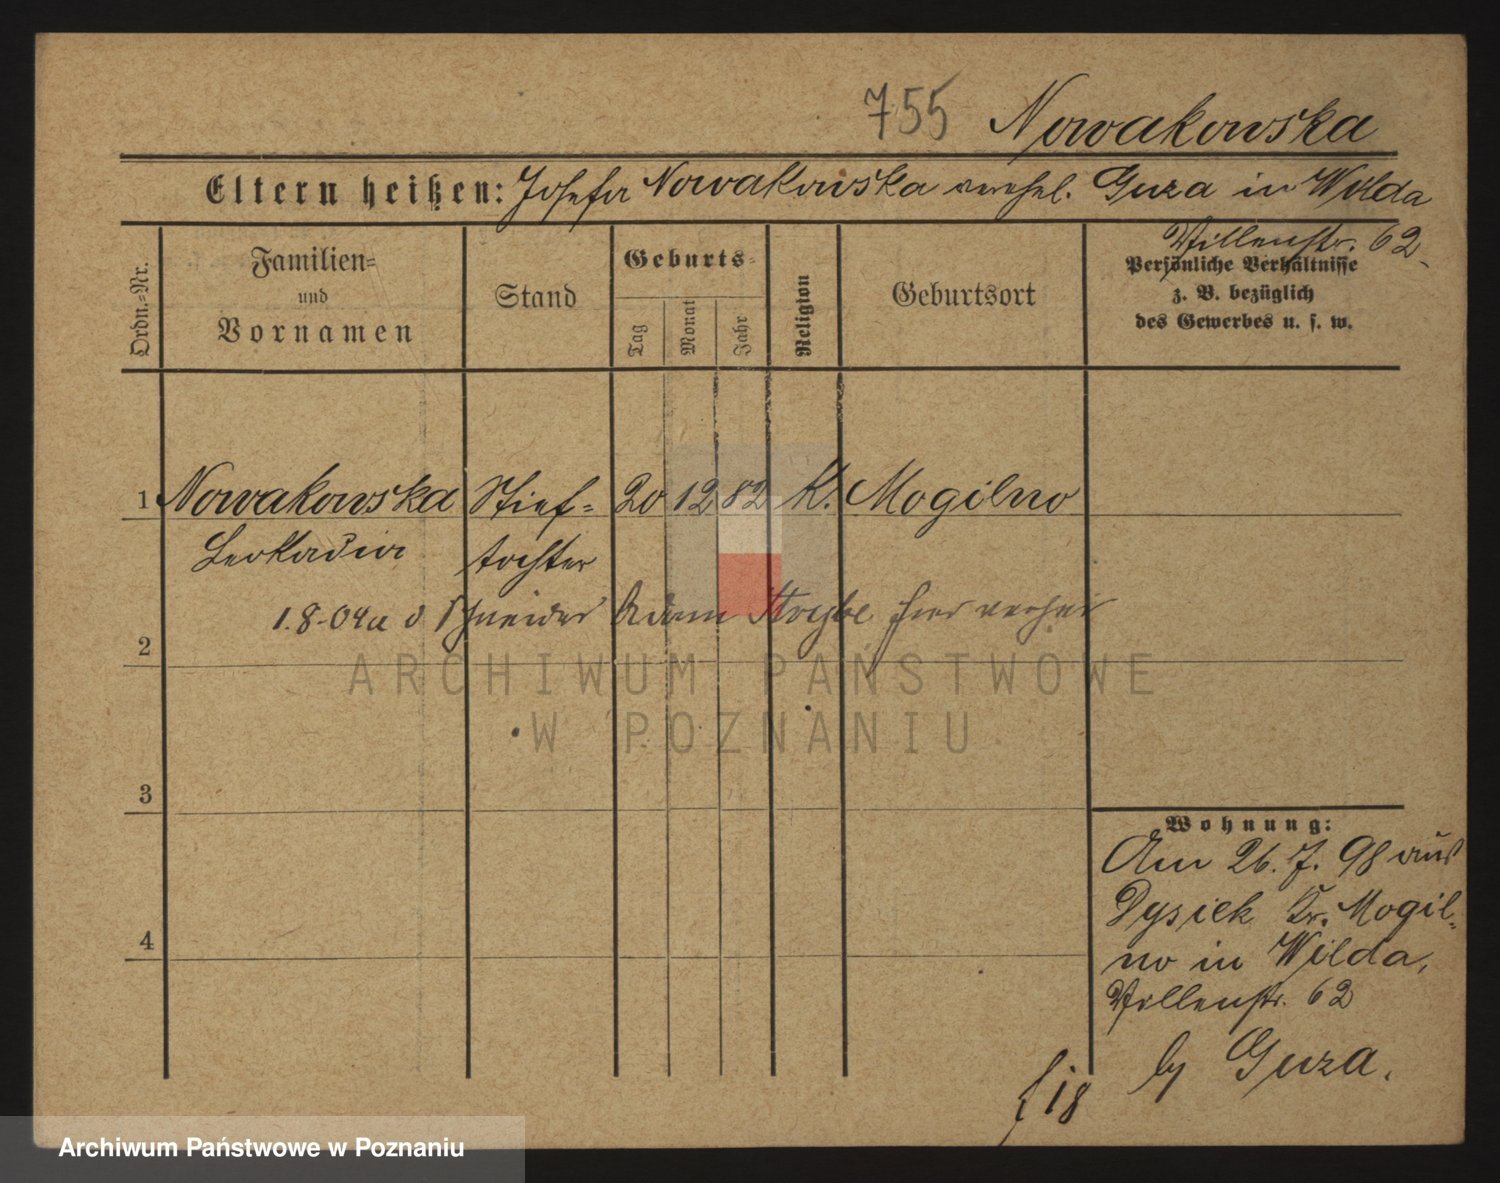 755 Nowakowska
Eltern heißen: Josefa Nowakowska verehel. Guza in Wilda
Villenstr. 62
Ordn.=Nr.
Familien=
und
Vornamen
Stand
Geburts=
Tag
Monat
Jahr
Religion
Geburtsort
Persönliche Verhältnisse
z. B. bezüglich
des Gewerbes u. s. w.
1 Nowakowska Stief= 20 12 82 K. Mogilno
Leokadia tochter
1.8.04 a d Schneider Adam hier verheir
2
ARCHIWUM PAŃSTWOWE
W POZNANIU
3
4
Wohnung:
Am 26. 7. 98 aus
Dysiek Kr. Mogil=
no in Wilda,
Villenstr. 62
by Guza.
f 18
Archiwum Państwowe w Poznaniu